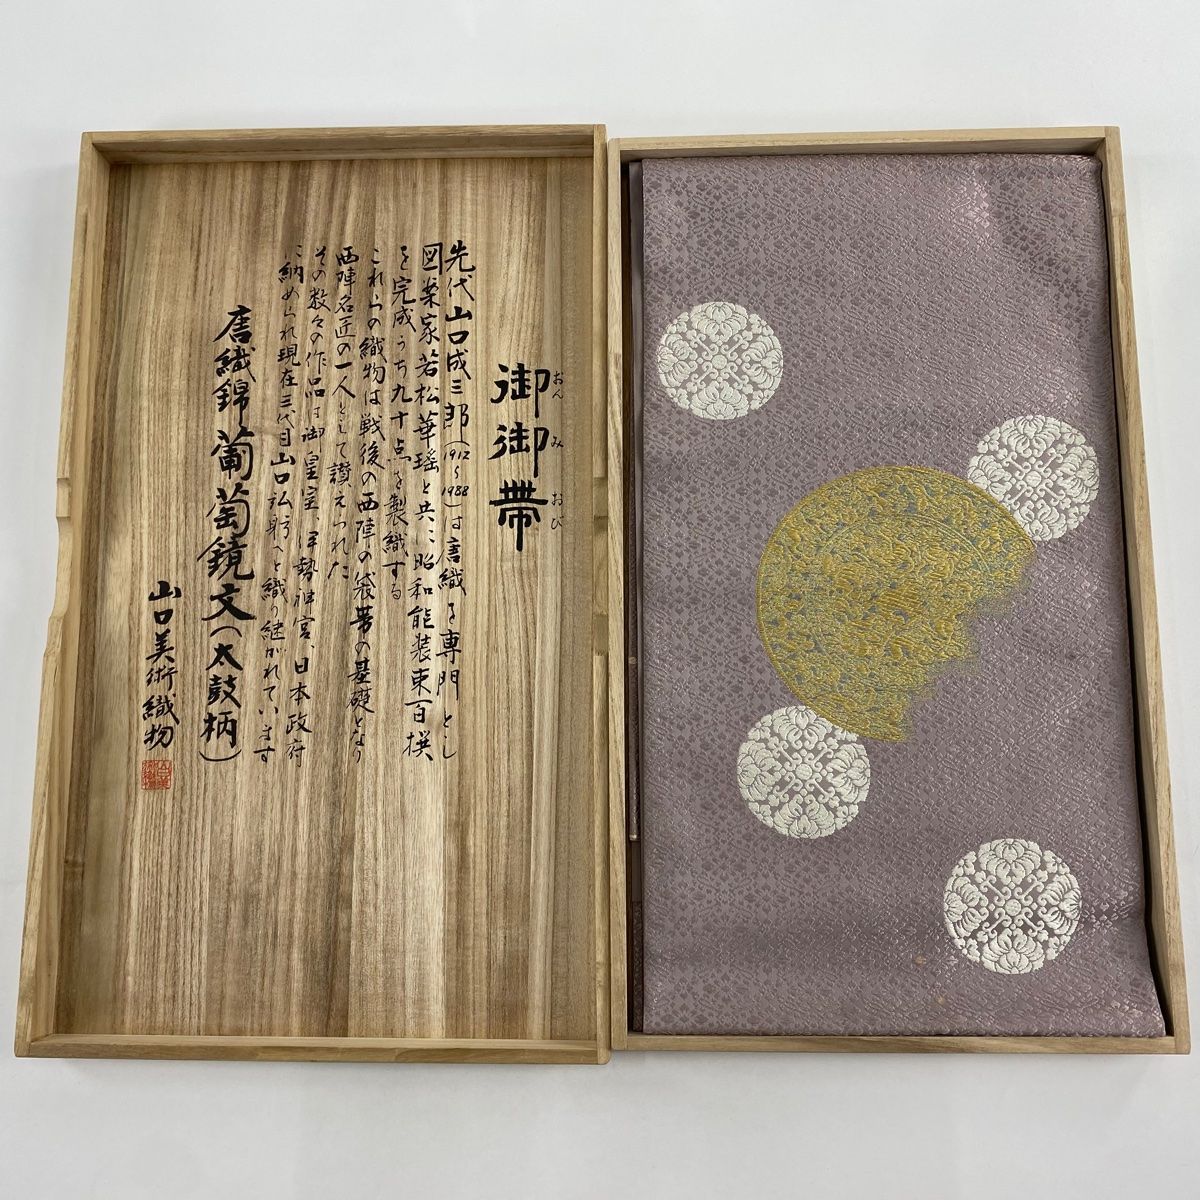 御御帯
おん み おび
先代山口成三郎(1912〜1988)は唐織を専門とし
図案家若松華瑶と共に昭和能装束百撰
を完成うち九十点を製織する
これらの織物は戦後の西陣の袋帯の基礎となり
西陣名匠の一人として讃えられた
その数々の作品は御皇室、伊勢神宮、日本政府
に納められ現在三代目山口弘躬へと織り継がれています
唐織錦葡萄鏡文(太鼓柄)
山口美術織物